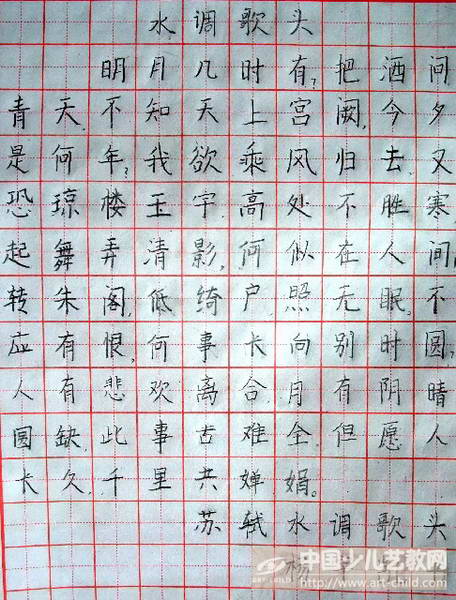 水调歌头
明月几时有?把酒问
青天.不知天上宫阙,今夕
是何年?我欲乘风归去.又
恐琼楼玉宇.高处不胜寒.
起舞弄清影,何似在人间,
转朱阁,低绮户.照无眠.不
应有恨,何事长向别时圆?
人有悲欢离合.月有阴晴
圆缺.此事古难全.但愿人
长久,千里共婵娟。
苏轼水调歌头
杨
中国少儿艺教网
http://www.art-child.com